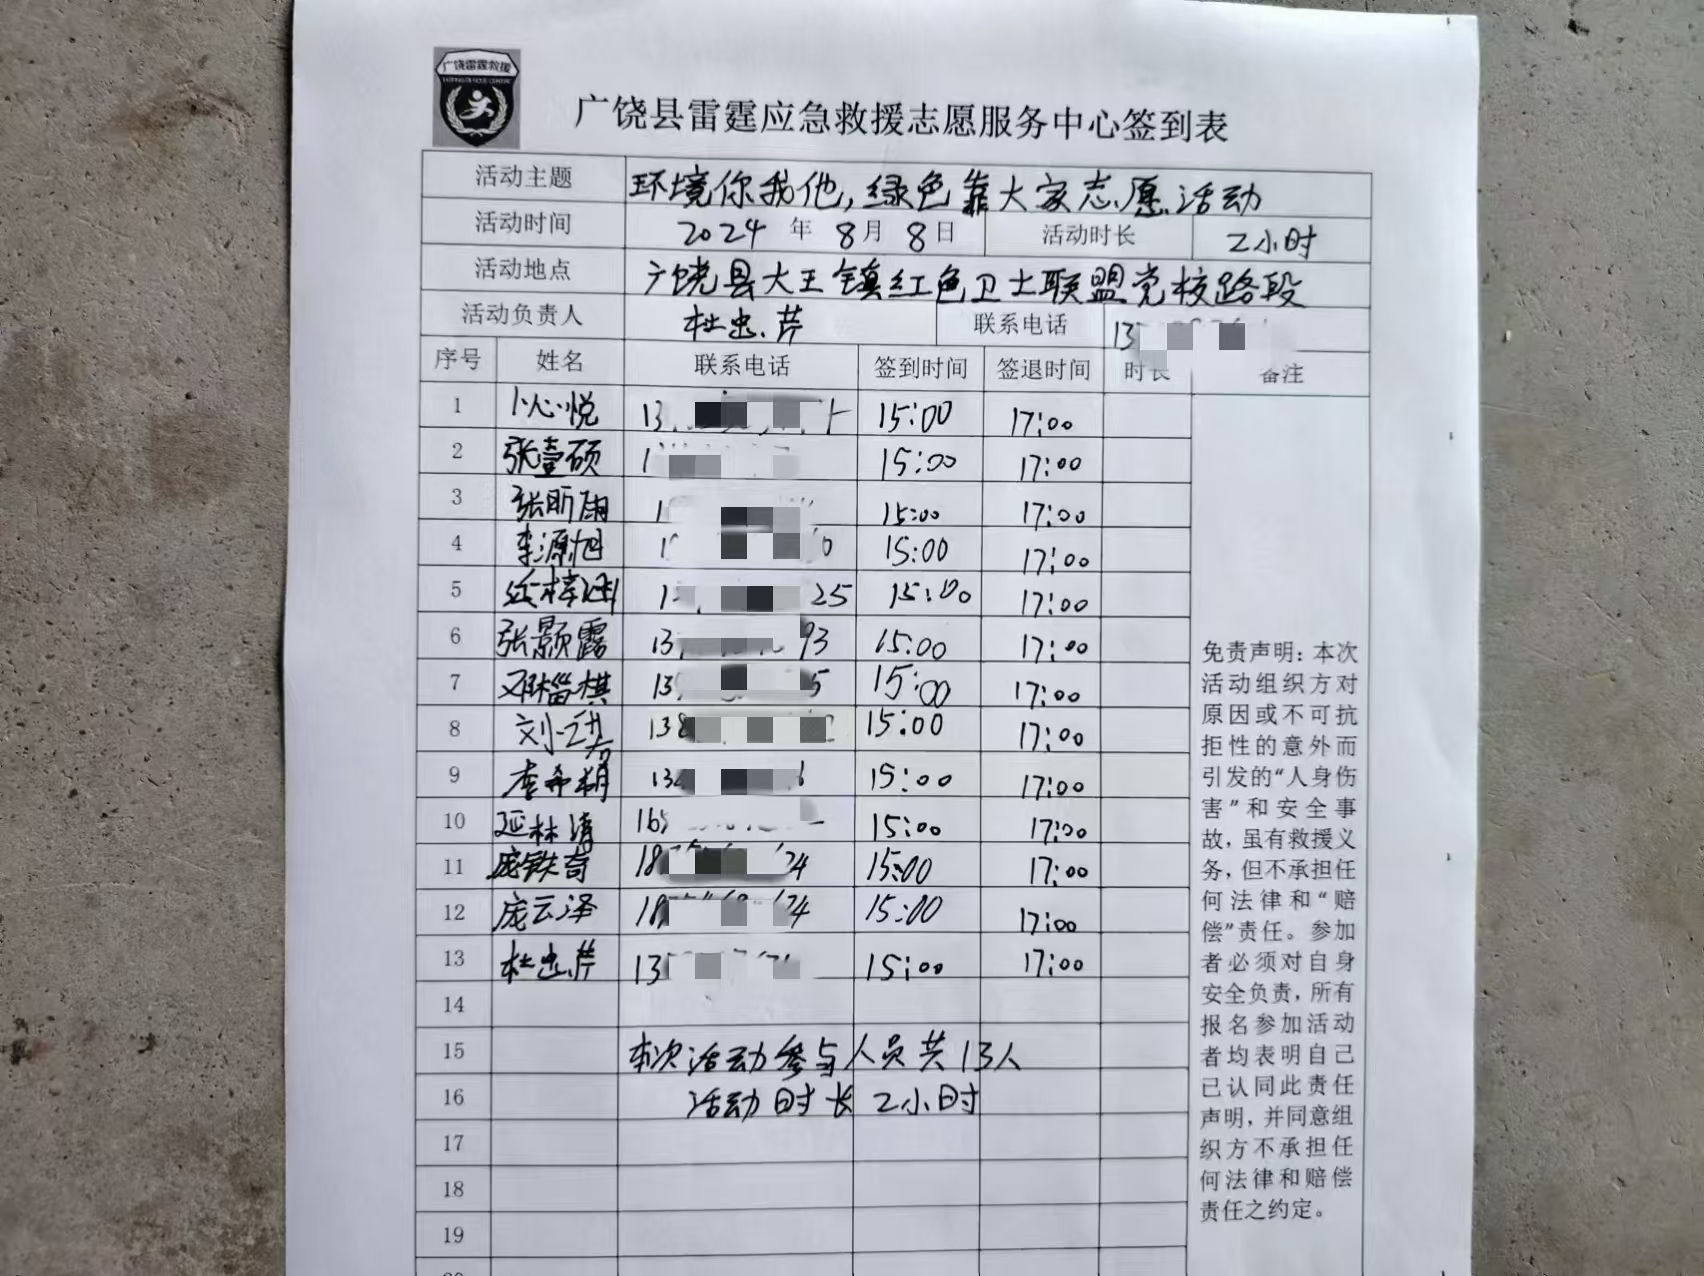 广饶雷霆救援
广饶县雷霆应急救援志愿服务中心签到表
活动主题 环境你我他,绿色靠大家志愿活动
活动时间 2024 年 8 月 8 日 活动时长 2小时
活动地点 广饶县大王镇红色卫士联盟党校路段
活动负责人 杜忠芹 联系电话 13
序号 姓名 联系电话 签到时间 签退时间 时长 备注
1 卜心悦 13 15:00 17:00
2 张壹硕 1 15:00 17:00
3 张昕雨 1 15:00 17:00
4 李源旭 1 0 15:00 17:00
5 1 25 15:00 17:00
6 张颢露 13 93 15:00 17:00
7 邓棋 13 5 15:00 17:00
8 刘 138 15:00 17:00
9 李希 13 15:00 17:00
10 延林清 15:00 17:00
11 庞铁奇 18 24 15:00 17:00
12 庞云泽 18 24 15:00 17:00
13 杜忠芹 13 15:00 17:00
14
15 本次活动参与人员共13人
16 活动时长2小时
17
18
19
20
免责声明:本次
活动组织方对
原因或不可抗
拒性的意外而
引发的“人身伤
害”和安全事
故,虽有救援义
务,但不承担任
何法律和“赔
偿”责任。参加
者必须对自身
安全负责,所有
报名参加活动
者均表明自己
已认同此责任
声明,并同意组
织方不承担任
何法律和赔偿
责任之约定。